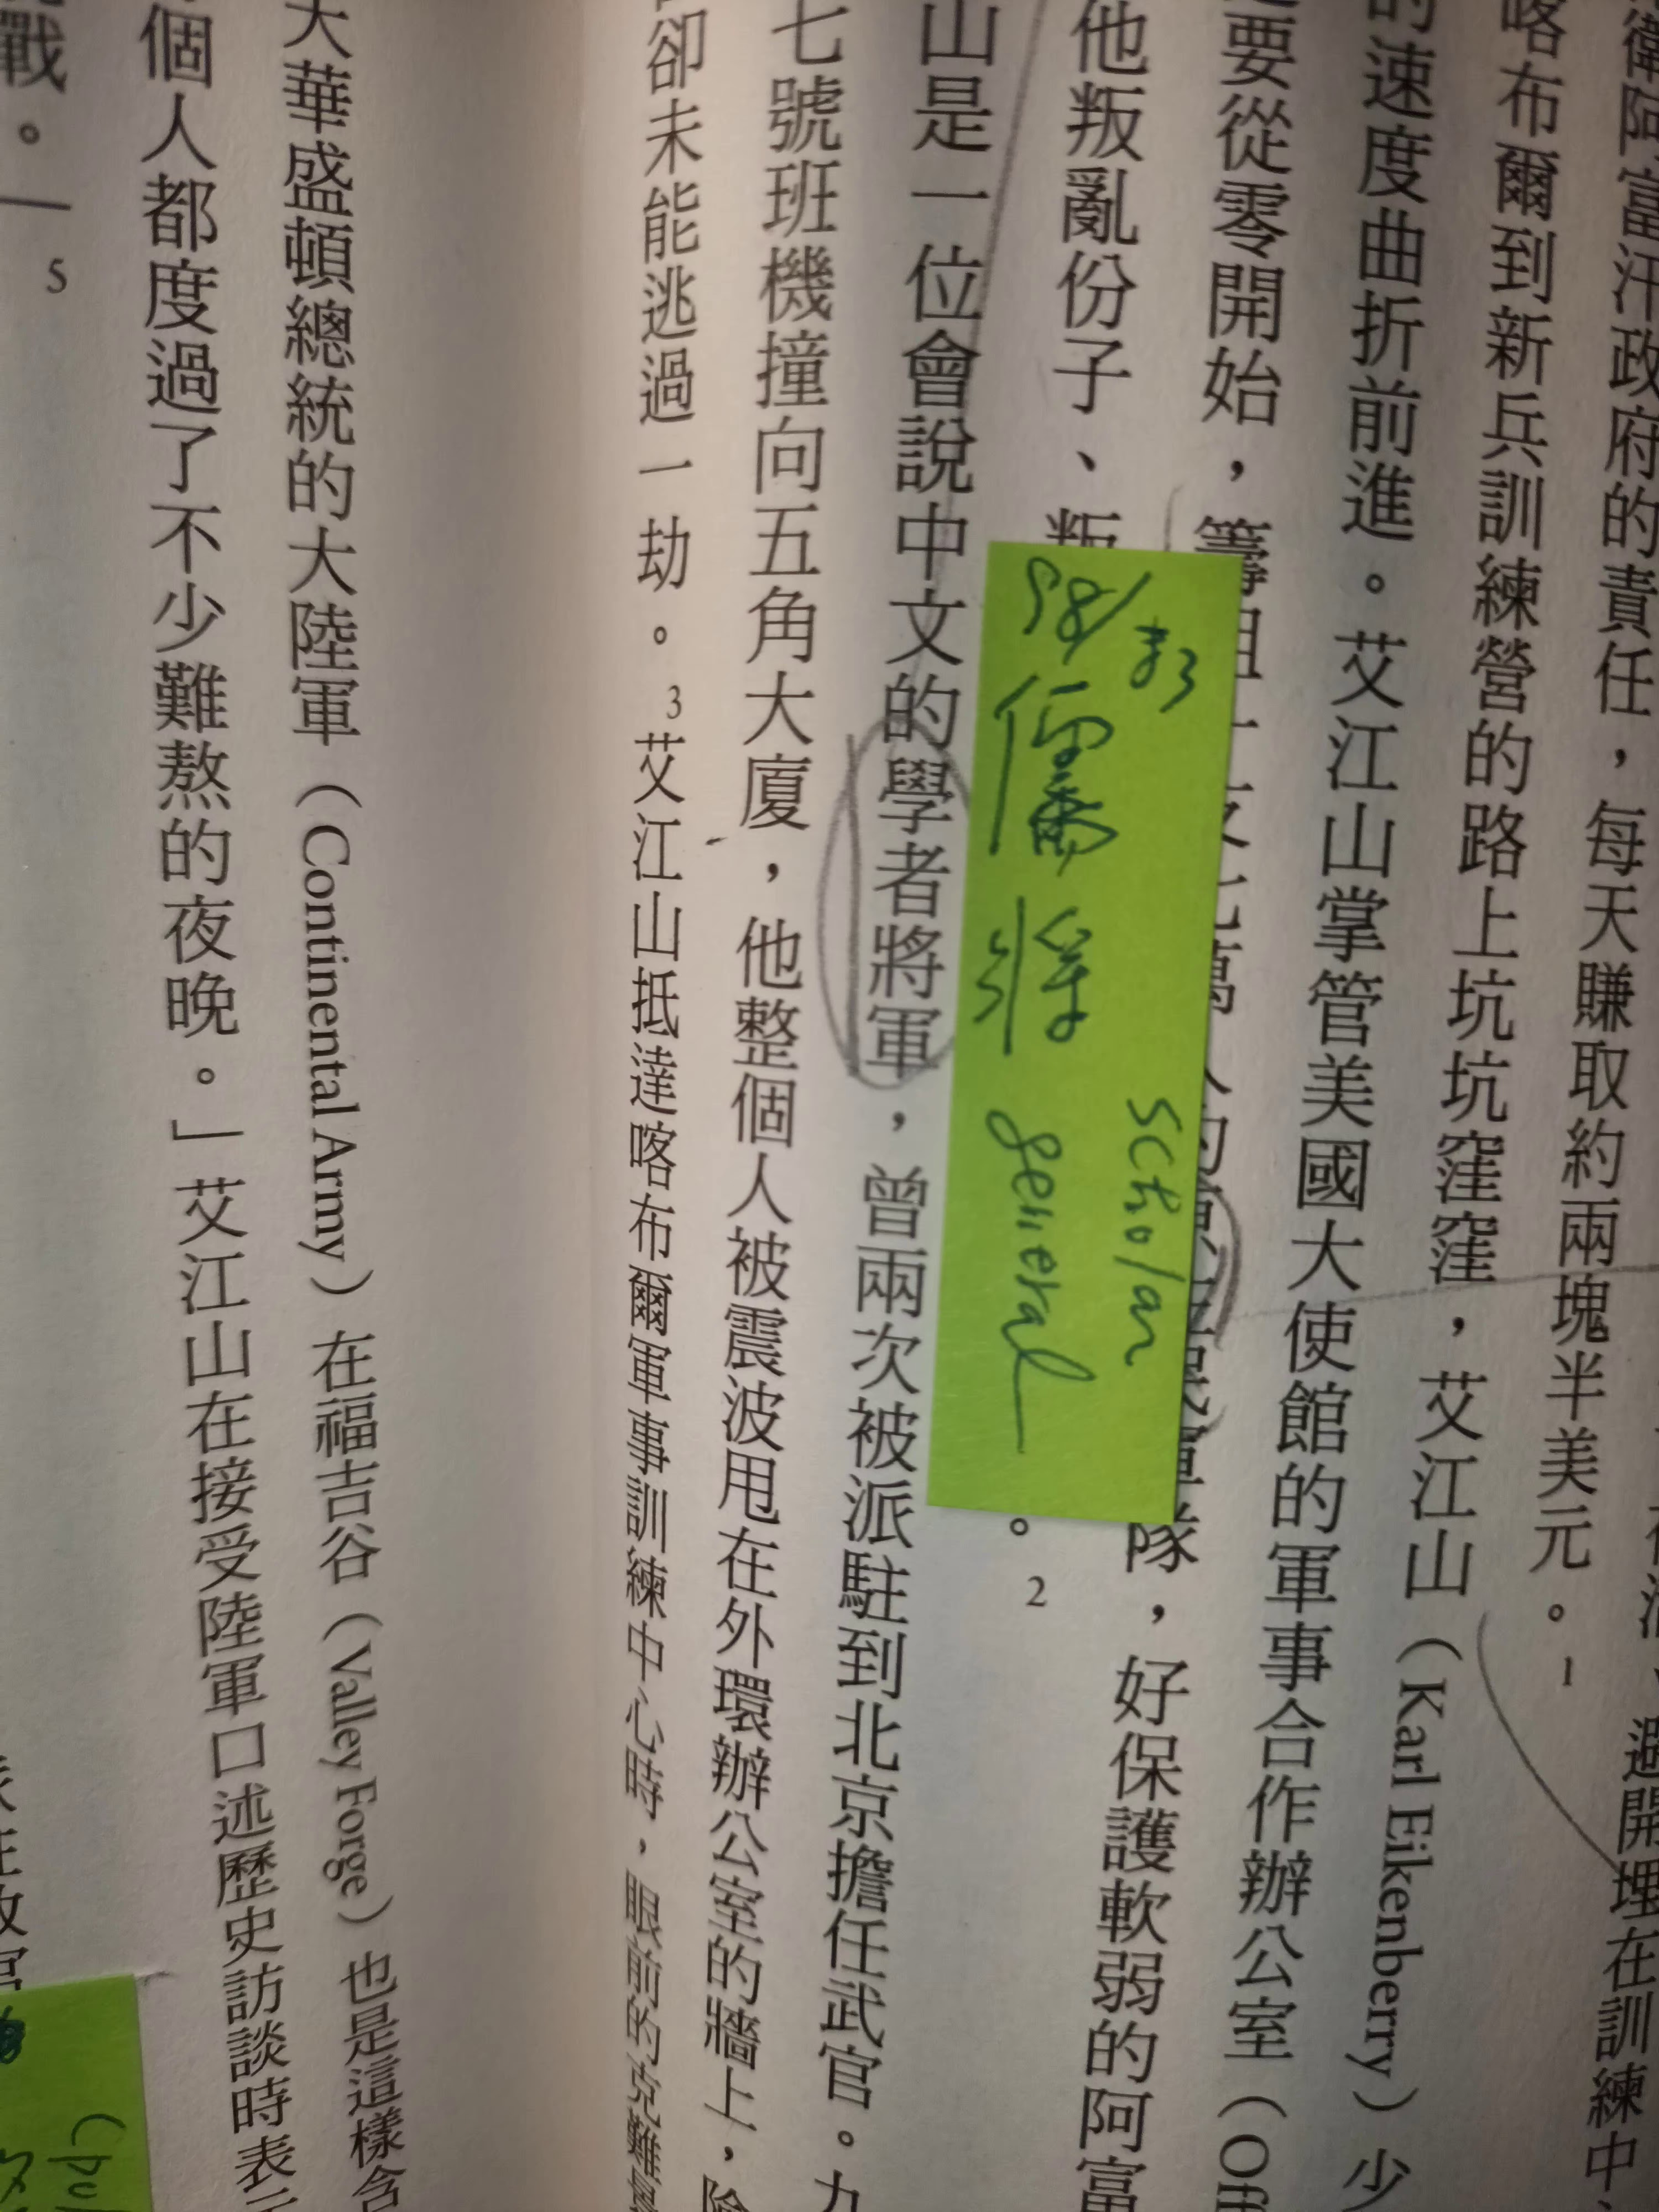 避開埋在訓練中
衛阿富汗政府的責任，每天賺取約兩塊半美元。1
喀布爾到新兵訓練營的路上坑坑窪窪，艾江山（Karl Eikenberry）少
的速度曲折前進。艾江山掌管美國大使館的軍事合作辦公室（Off
要從零開始，籌組 隊，好保護軟弱的阿富
他叛亂份子、叛 。2
58/
儒將
scholar
general
山是一位會說中文的學者將軍，曾兩次被派駐到北京擔任武官。九
七號班機撞向五角大廈，他整個人被震波甩在外環辦公室的牆上，險
卻未能逃過一劫。3艾江山抵達喀布爾軍事訓練中心時，眼前的克難景
大華盛頓總統的大陸軍（Continental Army）在福吉谷（Valley Forge）也是這樣含
個人都度過了不少難熬的夜晚。」艾江山在接受陸軍口述歷史訪談時表示
戰。— 5